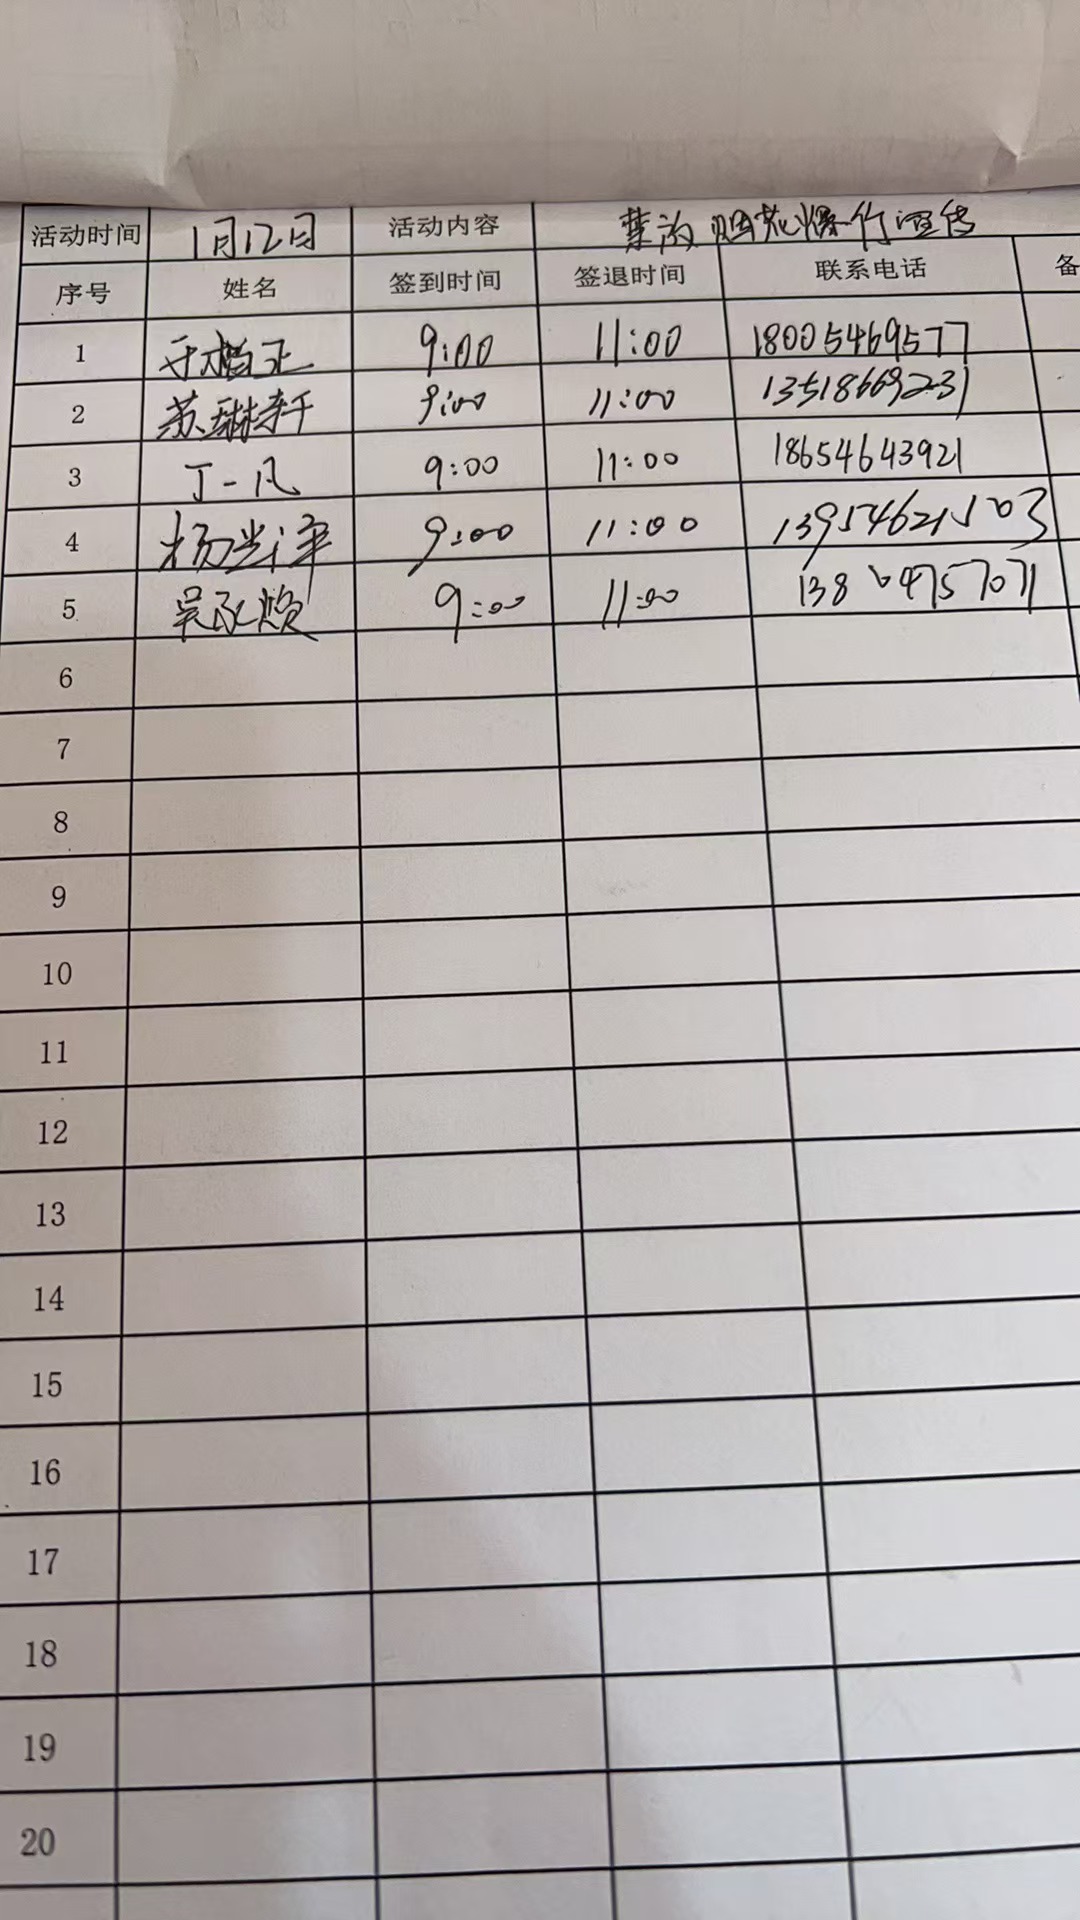 活动时间 1月12日 活动内容 禁放烟花爆竹宣传
序号 姓名 签到时间 签退时间 联系电话 备
1 9:00 11:00 18005469577
2 苏琳轩 9:00 11:00 13518669231
3 丁一凡 9:00 11:00 18654643921
4 杨 9:00 11:00 13954621503
5 吴 9:00 11:00
6
7
8
9
10
11
12
13
14
15
16
17
18
19
20